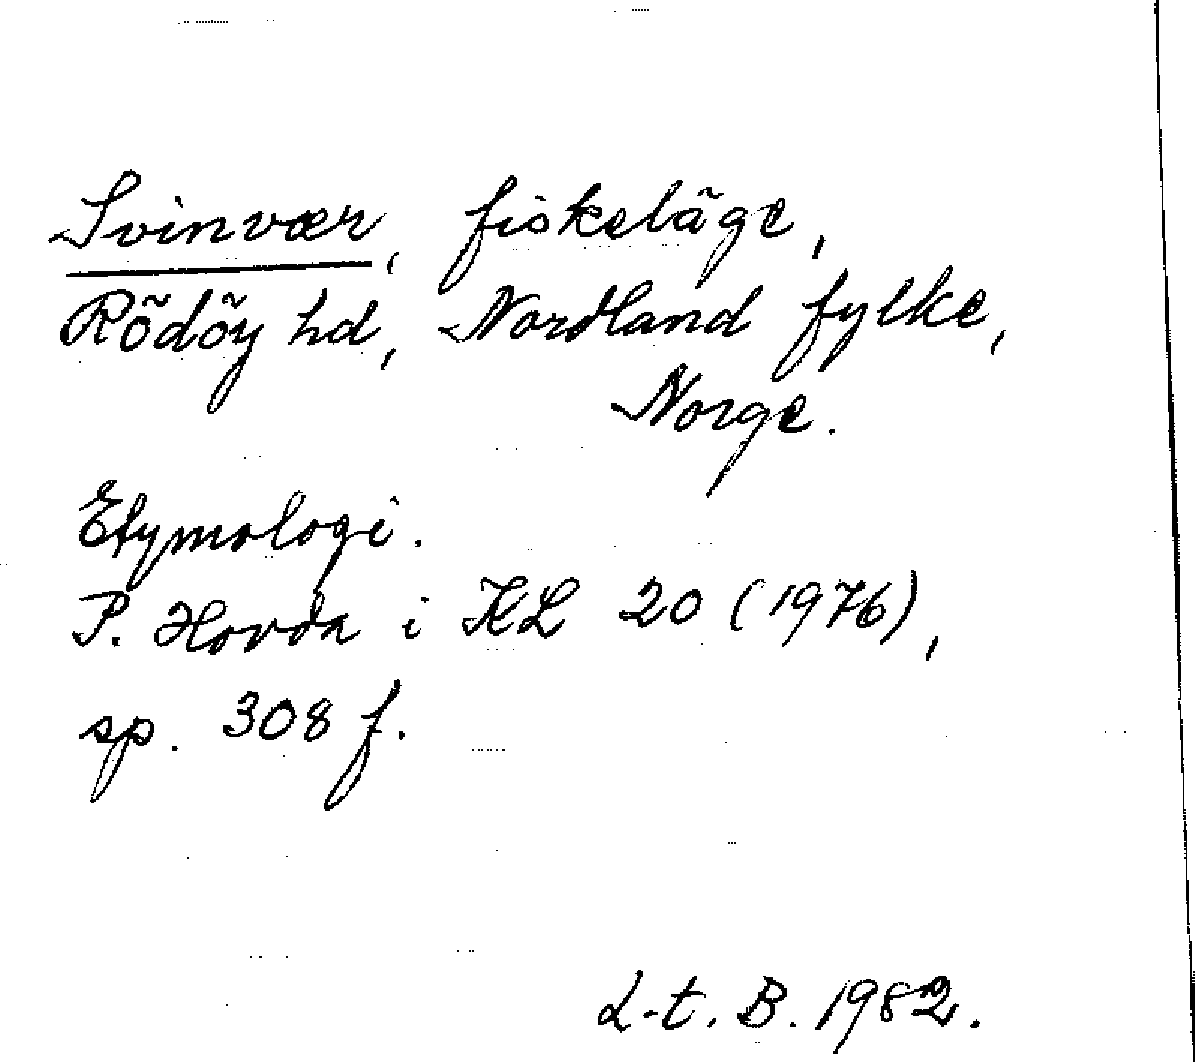 Svinvær, fiskeläge,
Rödöy hd, Nordland fylke,
Norge.
Etymologi.
P. Hovda i KL 20 (1976),
sp. 308 f.
L-t. B. 1982.